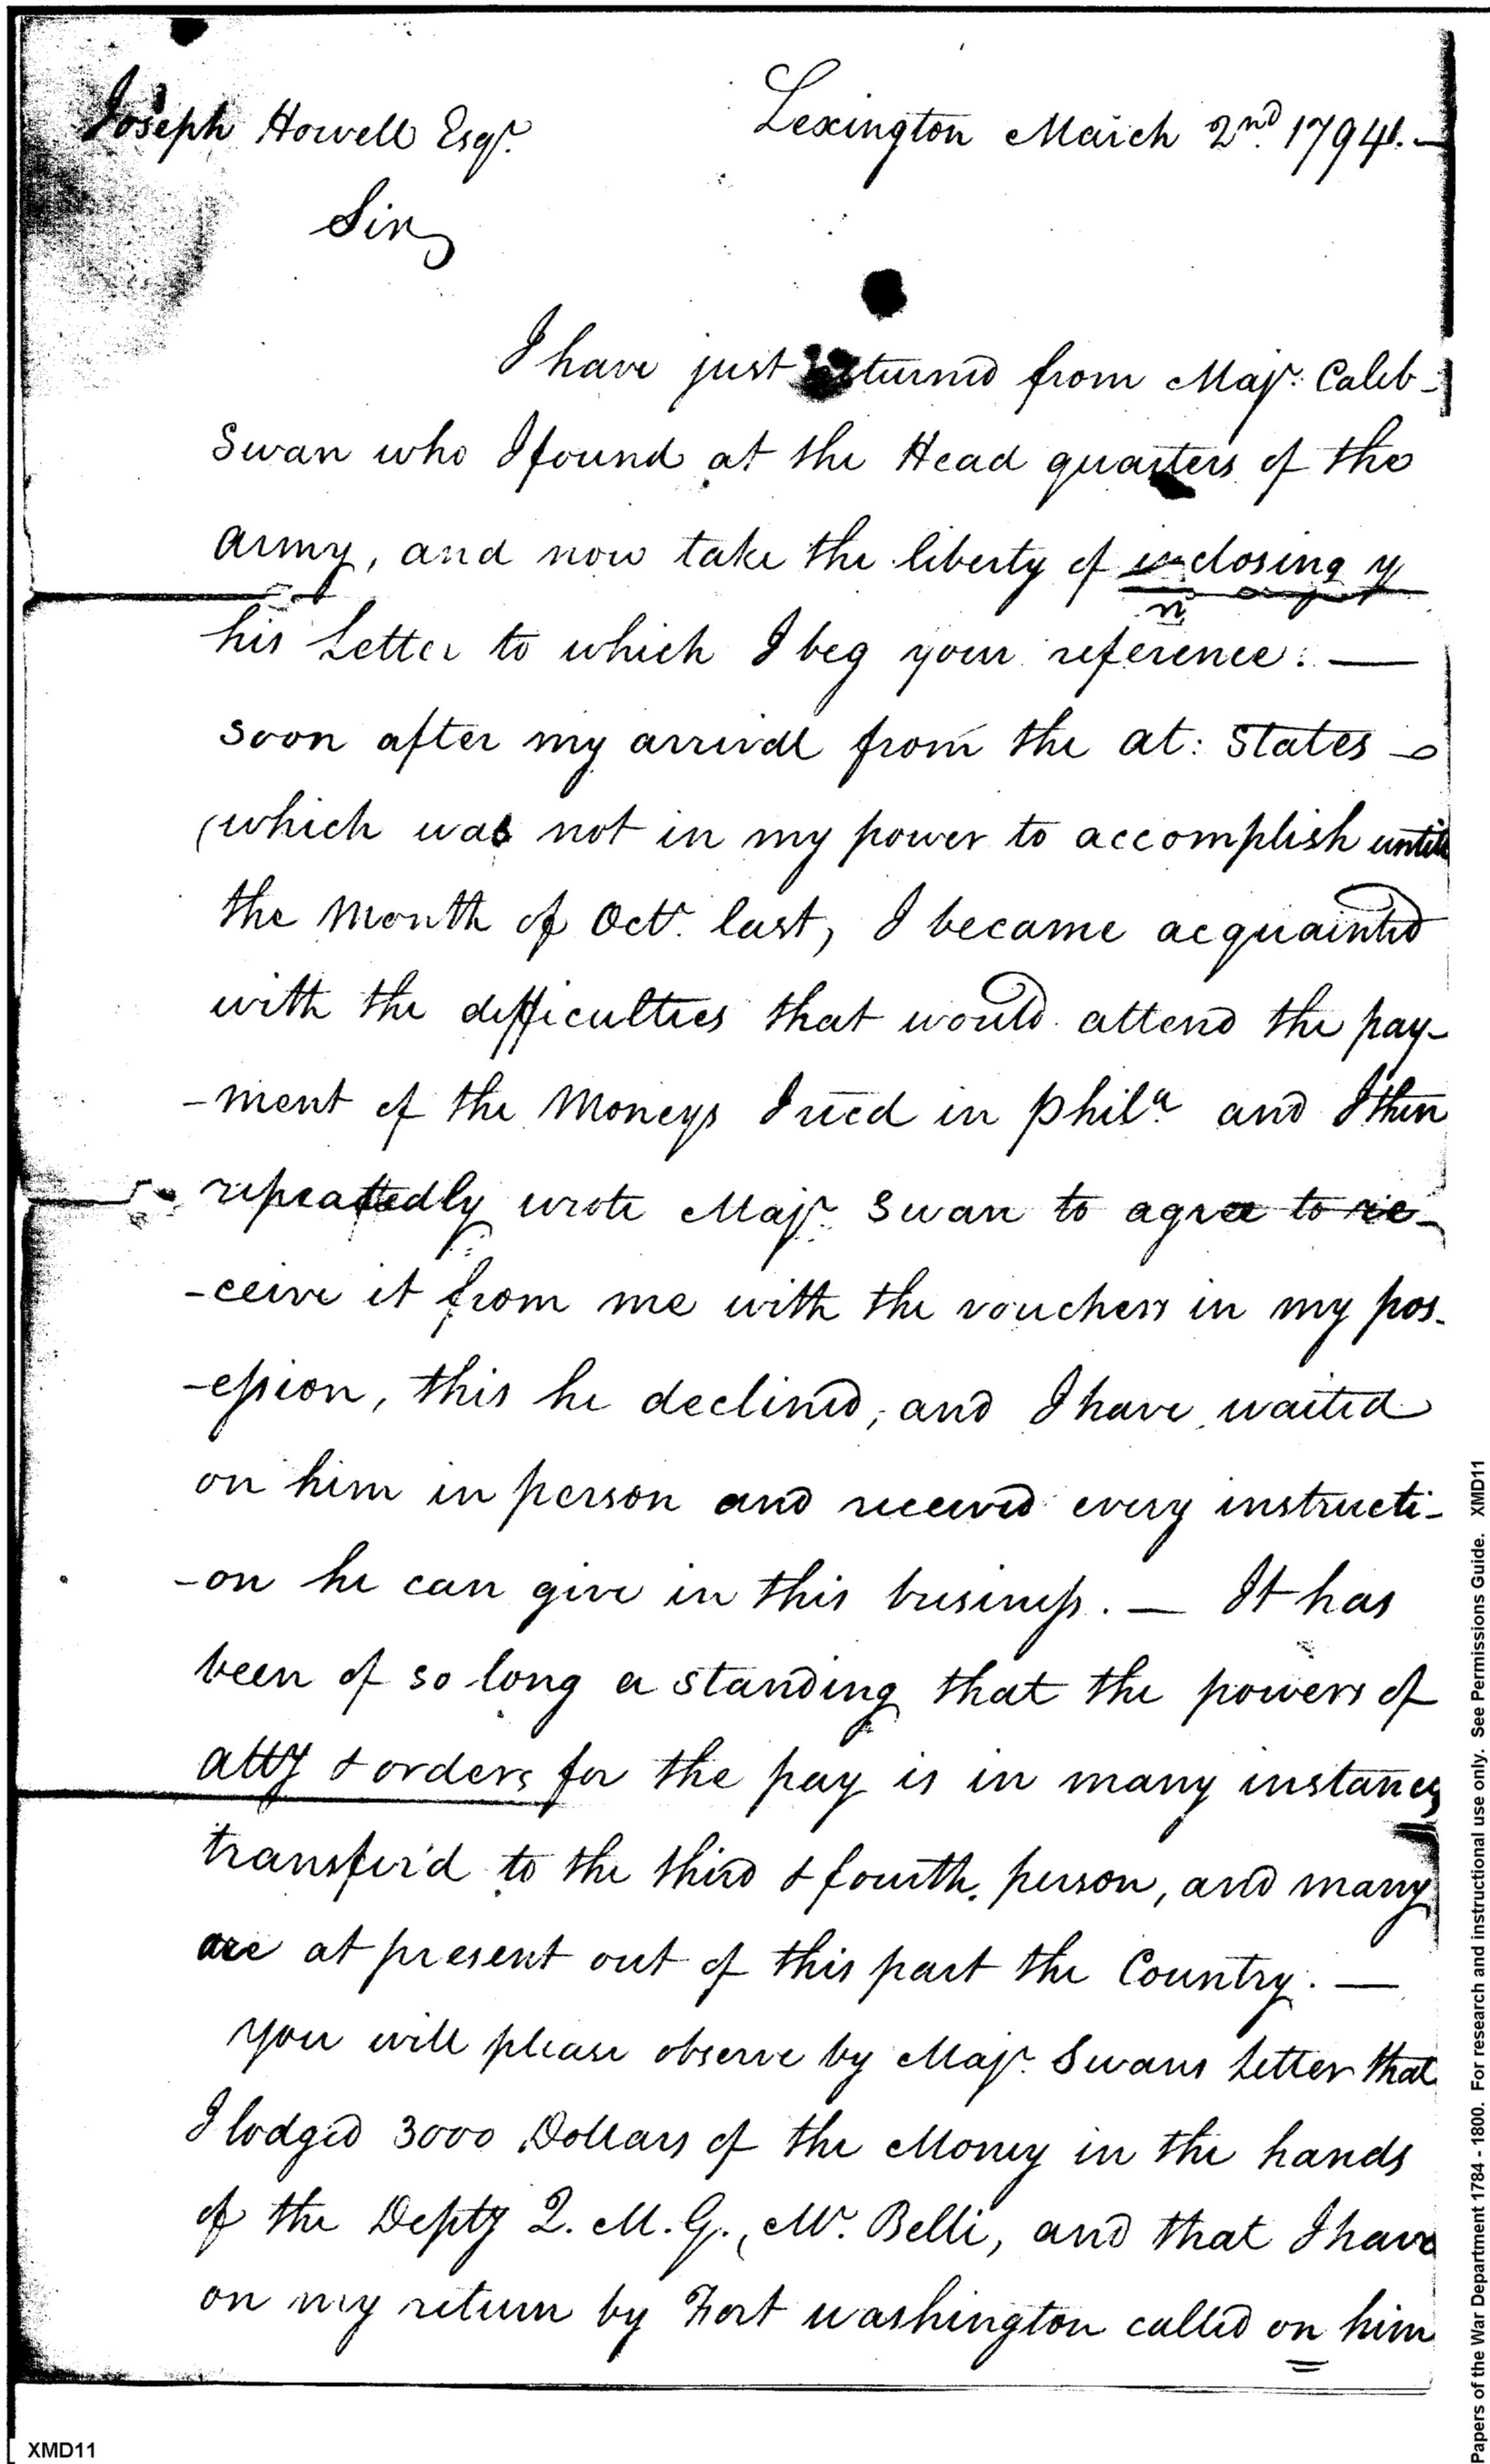 Joseph Howell Esqr. Lexington March 2nd. 1794. —
Sir,
I have just returned from Majr. Caleb
Swan who I found at the Head quarters of the
Army, and now take the liberty of inclosing y
his Letter to which I beg your reference. —
Soon after my arrival from the at: States
(which was not in my power to accomplish untill
the Month of Octr. last, I became acquainted
with the difficulties that would attend the pay-
-ment of the Moneys I recd in Phila. and I then
repeattedly wrote Majr. Swan to agree to re-
-ceive it from me with the vouchers in my pos-
-ession, this he declined, and I have waited
on him in person and received every instructi-
-on he can give in this business. — It has
been of so long a standing that the powers of
atty & orders for the pay is in many instances
transfer'd to the third & fourth person, and many
are at present out of this part the Country. —
You will please observe by Majr. Swans Letter that
I lodged 3000 Dollars of the Money in the hands
of the Depty Q. M. G., Mr. Belli, and that I have
on my return by Fort washington called on him
XMD11
Papers of the War Department 1784 - 1800. For research and instructional use only. See Permissions Guide. XMD11